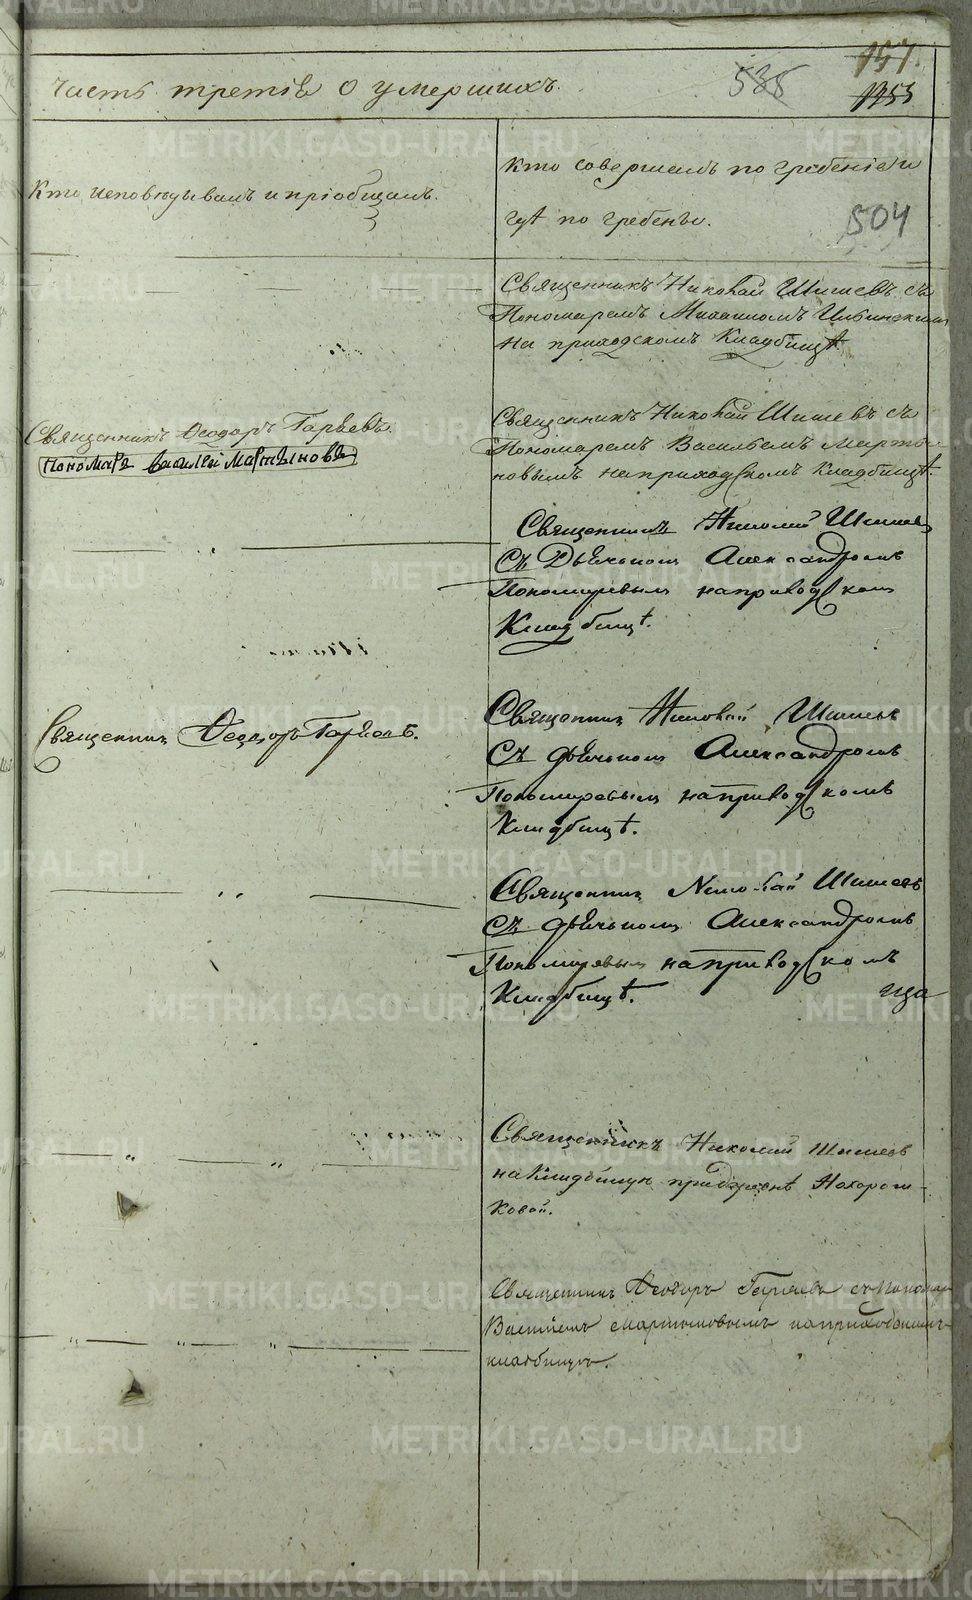 157.
538
1253
Часть третія о умершихъ.
Кто исповѣдывалъ и пріобщалъ.
Кто совершалъ погребеніе и
гдѣ погребены.
504
Священникъ Николай Шишевъ съ
Пономаремъ Михаиломъ
На приходскомъ Кладбищѣ.
Священникъ Ѳеодоръ Гаряевъ.
Пономарь Василей Мартыновъ
Священникъ Николай Шишевъ съ
Пономаремъ Васильемъ Марты-
новымъ на приходскомъ Кладбищѣ.
Священникъ Николай Шишевъ
Съ Дьячкомъ Александромъ
Пономаревымъ на приходскомъ
Кладбищѣ.
Священникъ Ѳеодоръ Гаряевъ.
Священникъ Николай Шишевъ
Съ дьячкомъ Александромъ
Пономаревымъ на приходскомъ
Кладбищѣ.
Священникъ Николай Шишевъ
Съ дьячкомъ Александромъ
Пономаревымъ на приходскомъ
Кладбищѣ.
Священникъ Николай Шишевъ
на Кладбищѣ при деревнѣ
ковой.
Священникъ Ѳеодоръ Гаряевъ съ Пономар
Васильемъ Мартыновымъ на приходскомъ
кладбищѣ.
METRIKI.GASO-URAL.RU